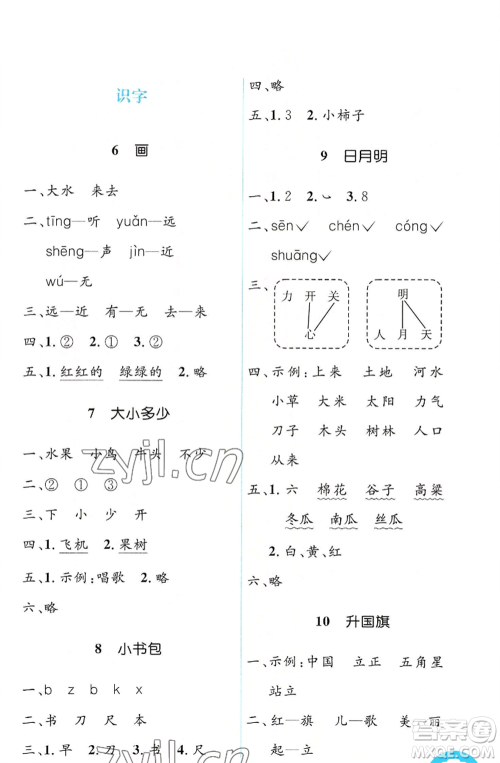 识字
6 画
一、大水 来去
二、tīng—听 yuǎn—远
shēng—声 jìn—近
wú—无
三、远—近 有—无 去—来
四、1.② 2.① 3.②
五、1.红红的 绿绿的 2.略
7 大小多少
一、水果 小鸟 牛头 不少
二、② ① ③
三、下 小 少 开
四、1.飞机 2.果树
五、1.示例:唱歌 2.略
六、略
8 小书包
一、b z b k b
二、书 刀 尺 本
三、1.早 2.刀 3.书 4.尺
四、略
五、1.3 2.小柿子
9 日月明
一、1.2 2.✓ 3.8
二、sēn✓ chén✓ cóng✓
shuāng✓
三、
力 开 关
心
明
人 月 天
四、示例:上来 土地 河水
小草 大米 太阳 力气
刀子 木头 树林 人口
从来
五、1.六 棉花 谷子 高粱
冬瓜 南瓜 西瓜
2.白、黄、红
六、略
10 升国旗
一、示例:中国 立正 五角星
站立
二、红—旗 儿—歌 美—丽
起—立
zyjl.cn
zyjl.cn
答案圈
MXQE.COM